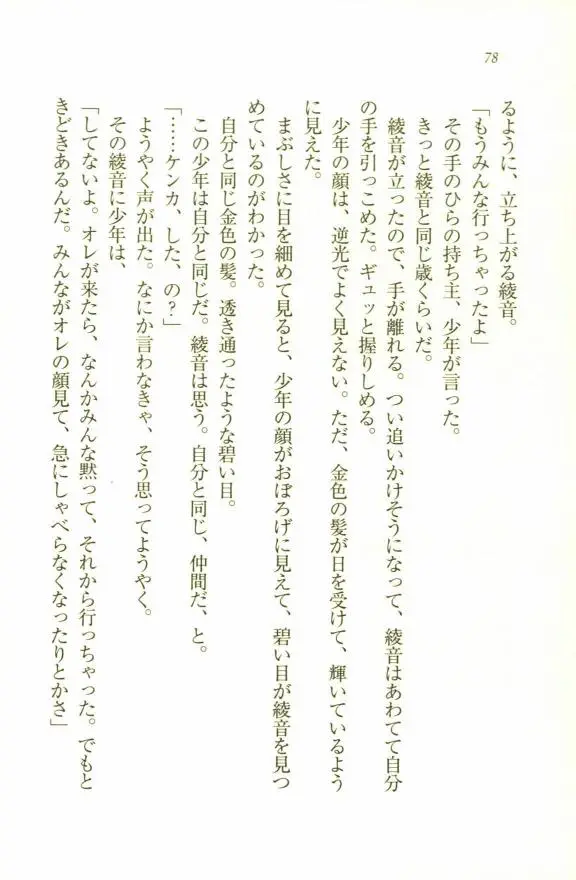 78
るように、立ち上がる綾音。
「もうみんな行っちゃったよ」
その手のひらの持ち主、少年が言った。
きっと綾音と同じ歳くらいだ。
綾音が立ったので、手が離れる。つい追いかけそうになって、綾音はあわてて自分
の手を引っこめた。ギュッと握りしめる。
少年の顔は、逆光でよく見えない。ただ、金色の髪が日を受けて、輝いているよう
に見えた。
まぶしさに目を細めて見ると、少年の顔がおぼろげに見えて、碧い目が綾音を見つ
めているのがわかった。
自分と同じ金色の髪。透き通ったような碧い目。
この少年は自分と同じだ。綾音は思う。自分と同じ、仲間だ、と。
「……ケンカ、した、の?」
ようやく声が出た。なにか言わなきゃ、そう思ってようやく。
その綾音に少年は、
「してないよ。オレが来たら、なんかみんな黙って、それから行っちゃった。でもと
きどきあるんだ。みんながオレの顔見て、急にしゃべらなくなったりとかさ」